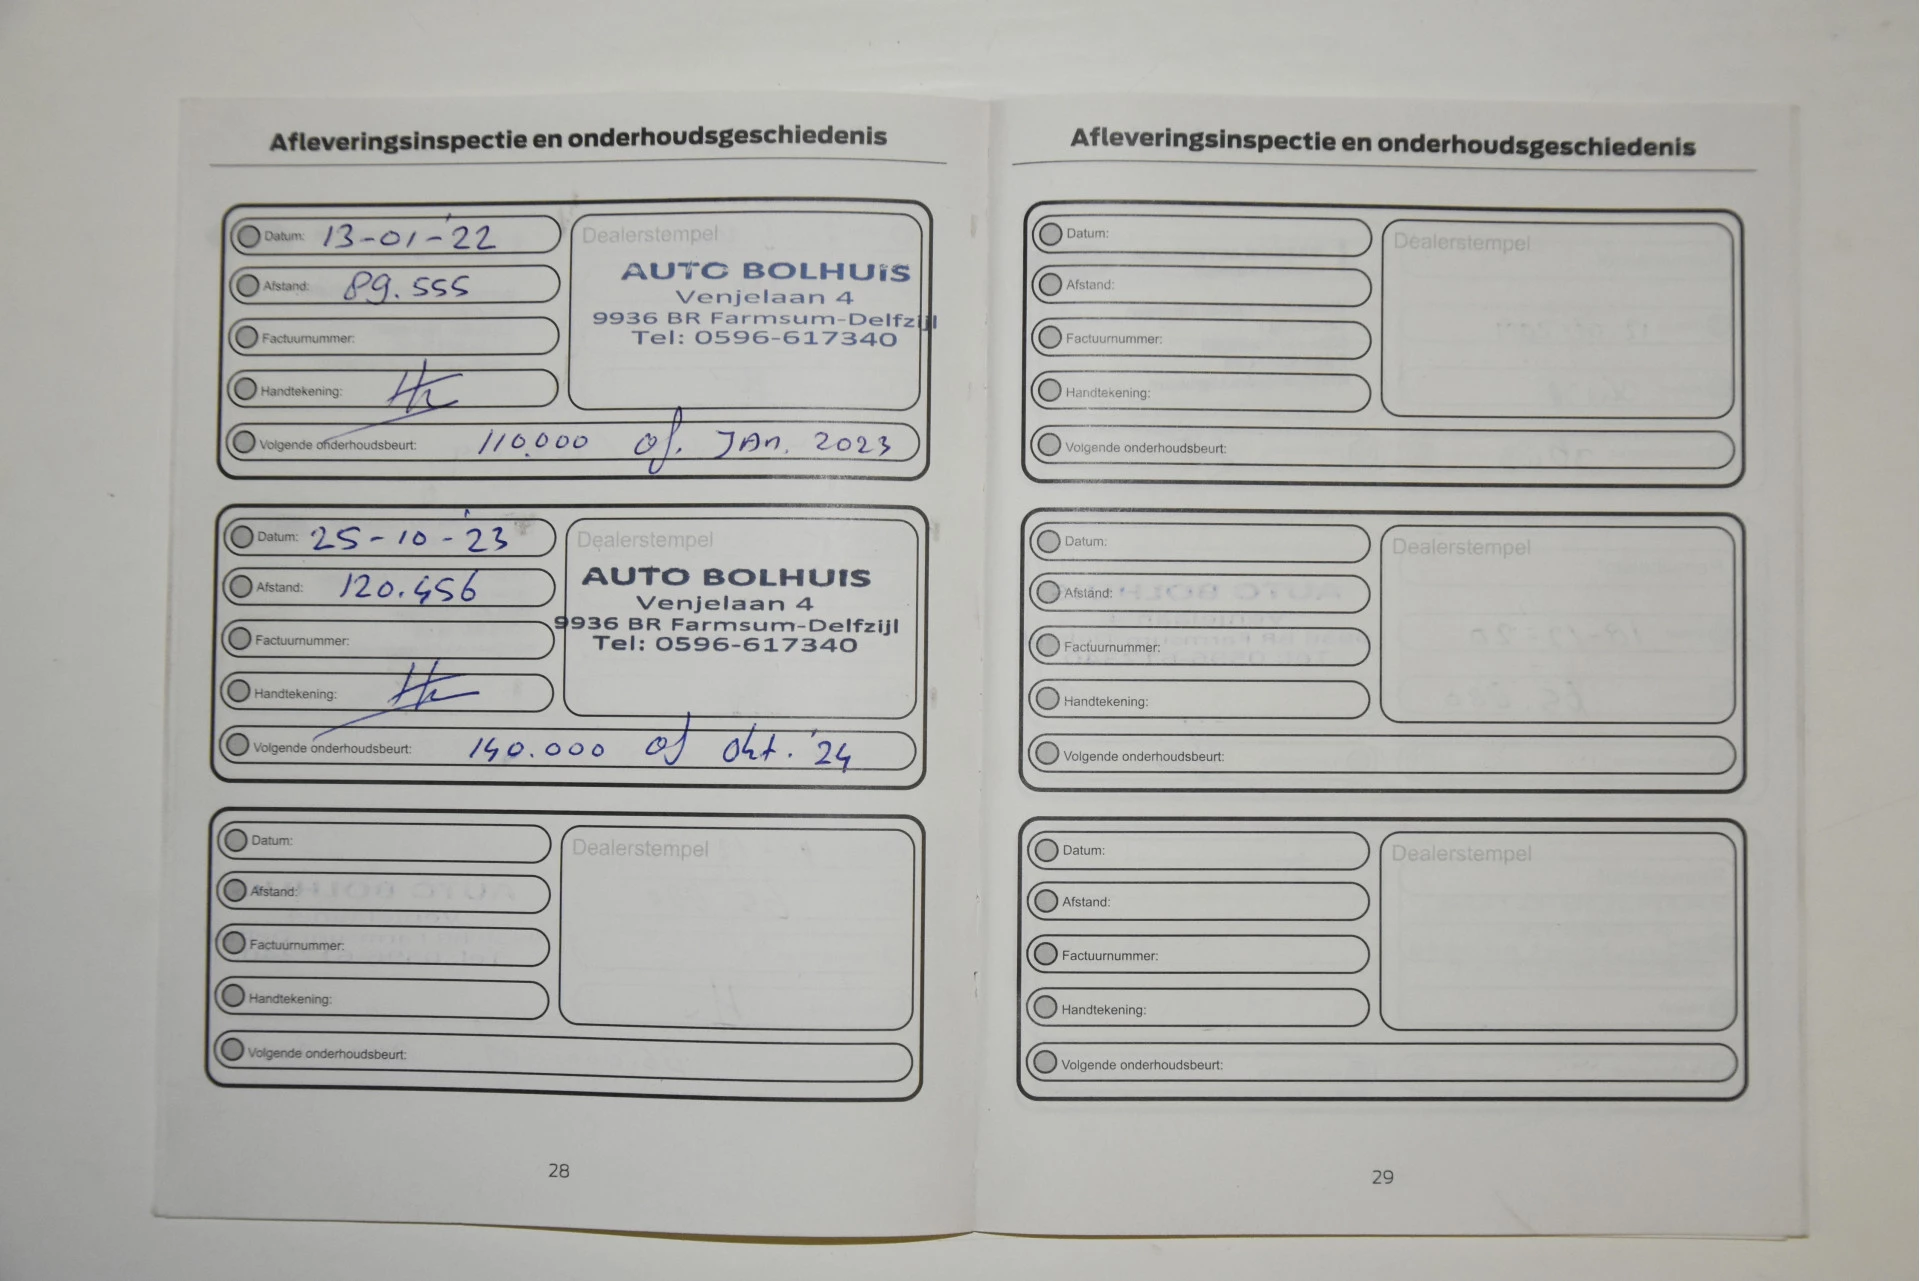 Afleveringsinspectie en onderhoudsgeschiedenis
Datum: 13-01-'22
Afstand: 89.555
Factuurnummer:
Handtekening:
Dealerstempel
AUTO BOLHUIS
Venjelaan 4
9936 BR Farmsum-Delfzijl
Tel: 0596-617340
Volgende onderhoudsbeurt: 110.000 of. JAN. 2023
Datum: 25-10-'23
Afstand: 120.456
Factuurnummer:
Handtekening:
Dealerstempel
AUTO BOLHUIS
Venjelaan 4
9936 BR Farmsum-Delfzijl
Tel: 0596-617340
Volgende onderhoudsbeurt: 140.000 of okt. '24
Datum:
Afstand:
Factuurnummer:
Handtekening:
Dealerstempel
Volgende onderhoudsbeurt:
28
Afleveringsinspectie en onderhoudsgeschiedenis
Datum:
Afstand:
Factuurnummer:
Handtekening:
Dealerstempel
Volgende onderhoudsbeurt:
Datum:
Afstand:
Factuurnummer:
Handtekening:
Dealerstempel
Volgende onderhoudsbeurt:
Datum:
Afstand:
Factuurnummer:
Handtekening:
Dealerstempel
Volgende onderhoudsbeurt:
29